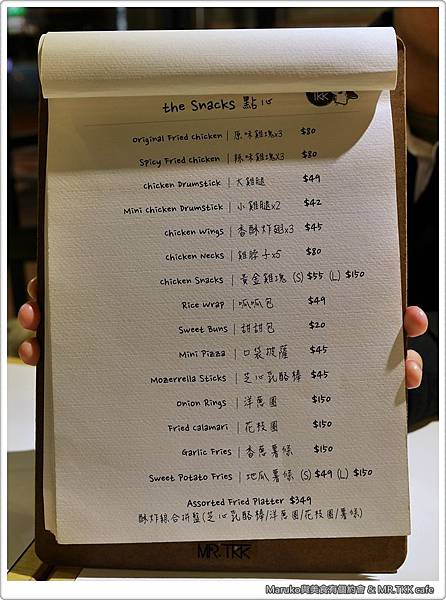 the Snacks 點心
TKK
Original Fried Chicken | 原味雞塊x3 $80
Spicy Fried Chicken | 辣味雞塊x3 $80
Chicken Drumstick | 大雞腿 $49
Mini Chicken Drumstick | 小雞腿x2 $42
Chicken Wings | 香酥炸翅x3 $45
Chicken Necks | 雞脖子x5 $80
Chicken Snacks | 黃金雞塊 (S) $55 (L) $150
Rice Wrap | 呱呱包 $49
Sweet Buns | 甜甜包 $20
Mini Pizza | 口袋披薩 $45
Mozerrella Sticks | 芝心乳酪棒 $45
Onion Rings | 洋蔥圈 $150
Fried Calamari | 花枝圈 $150
Garlic Fries | 香蔥薯條 $150
Sweet Potato Fries | 地瓜薯條 (S) $49 (L) $150
Assorted Fried Platter $349
酥炸綜合拼盤(芝心乳酪棒/洋蔥圈/花枝圈/薯條)
MR.TKK
Maruko與美食有個約會 & MR.TKK cafe